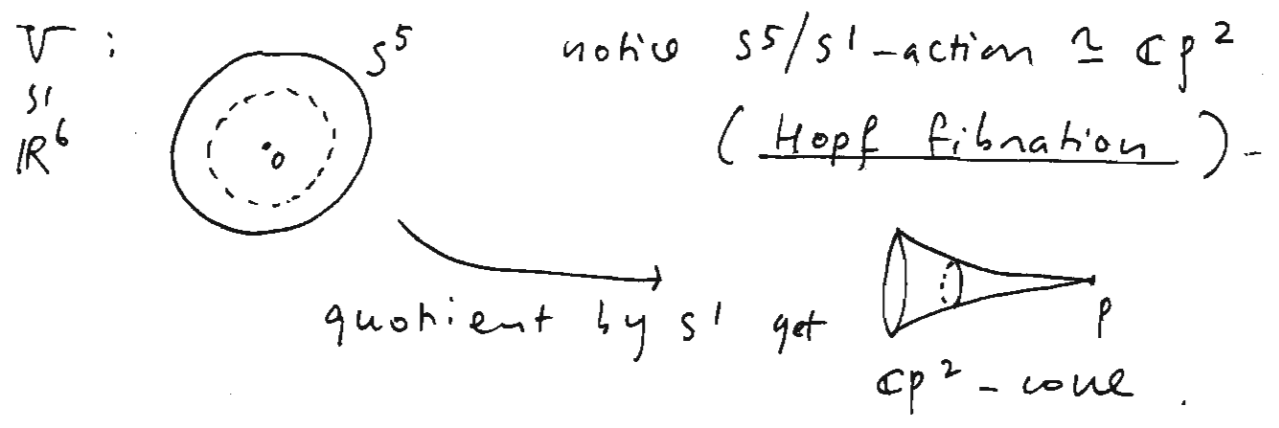 V : S⁵ notice S⁵/S¹-action ≃ ℂP²
S¹
ℝ⁶ (Hopf fibration) -
0
quotient by S¹ get p
ℂP² - cone .